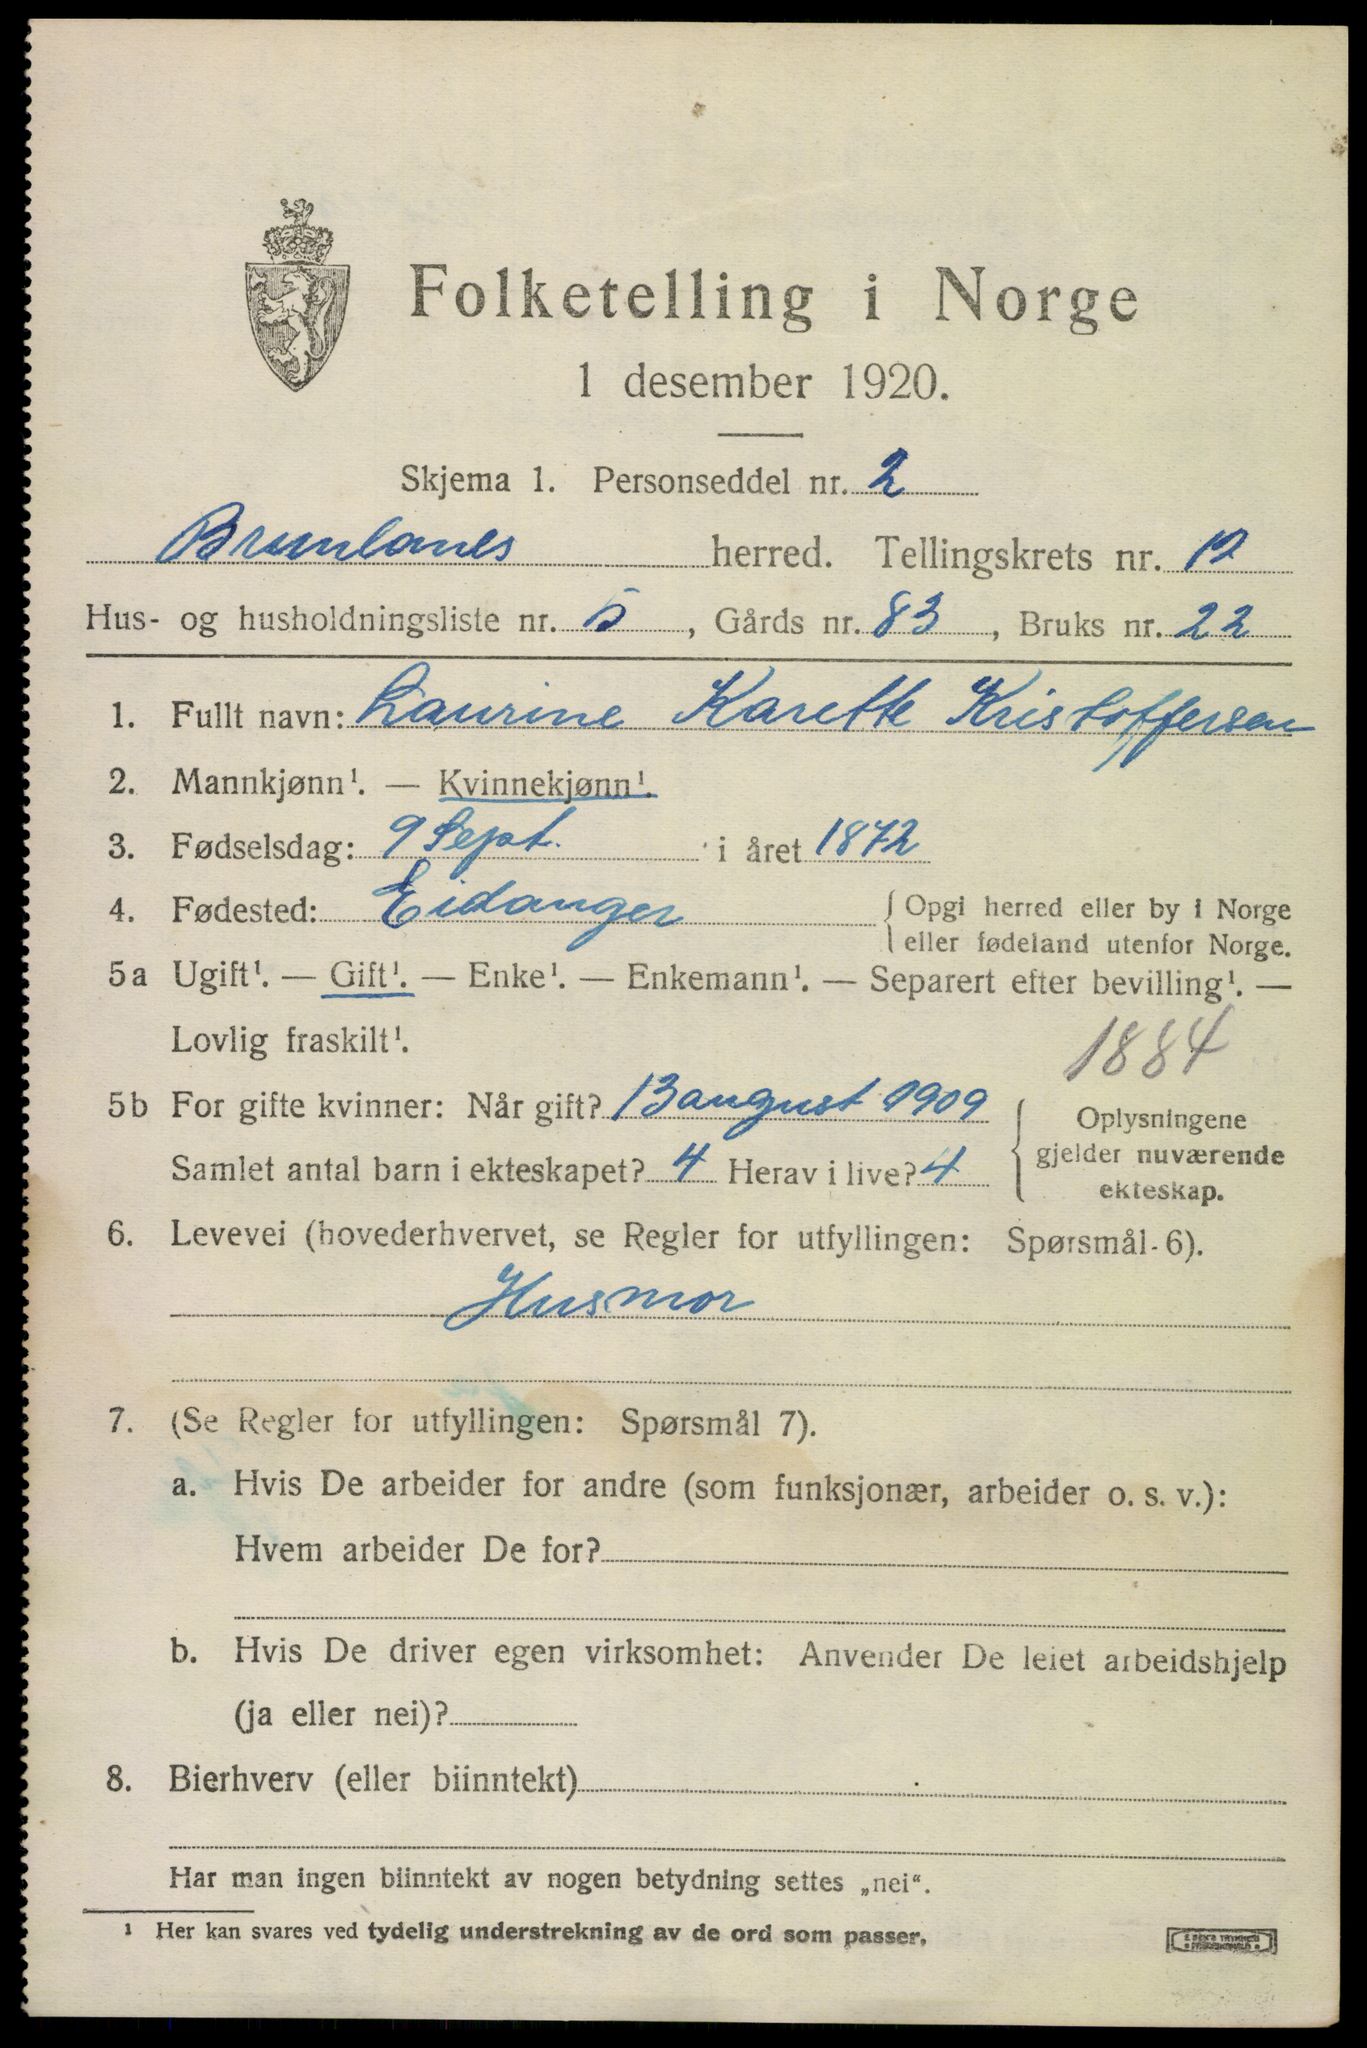 Folketelling i Norge
1 desember 1920.
Skjema 1. Personseddel nr. 2
Brunlanes herred. Tellingskrets nr. 12
Hus- og husholdningsliste nr. 5, Gårds nr. 83, Bruks nr. 22
1. Fullt navn: Laurine Karette Kristoffersen
2. Mannkjønn¹. — Kvinnekjønn¹.
3. Fødselsdag: 9 Sept. i året 1872
4. Fødested: Eidanger { Opgi herred eller by i Norge
eller fødeland utenfor Norge.
5a Ugift¹. — Gift¹. — Enke¹. — Enkemann¹. — Separert efter bevilling¹. —
Lovlig fraskilt¹.
1884
5b For gifte kvinner: Når gift? 13 august 1909
Samlet antal barn i ekteskapet? 4 Herav i live? 4
Oplysningene
gjelder nuværende
ekteskap.
6. Levevei (hovederhvervet, se Regler for utfyllingen: Spørsmål 6).
Husmor
7. (Se Regler for utfyllingen: Spørsmål 7).
a. Hvis De arbeider for andre (som funksjonær, arbeider o. s. v.):
Hvem arbeider De for?
b. Hvis De driver egen virksomhet: Anvender De leiet arbeidshjelp
(ja eller nei)?
8. Bierhverv (eller biinntekt)
Har man ingen biinntekt av nogen betydning settes „nei“.
¹ Her kan svares ved tydelig understrekning av de ord som passer.